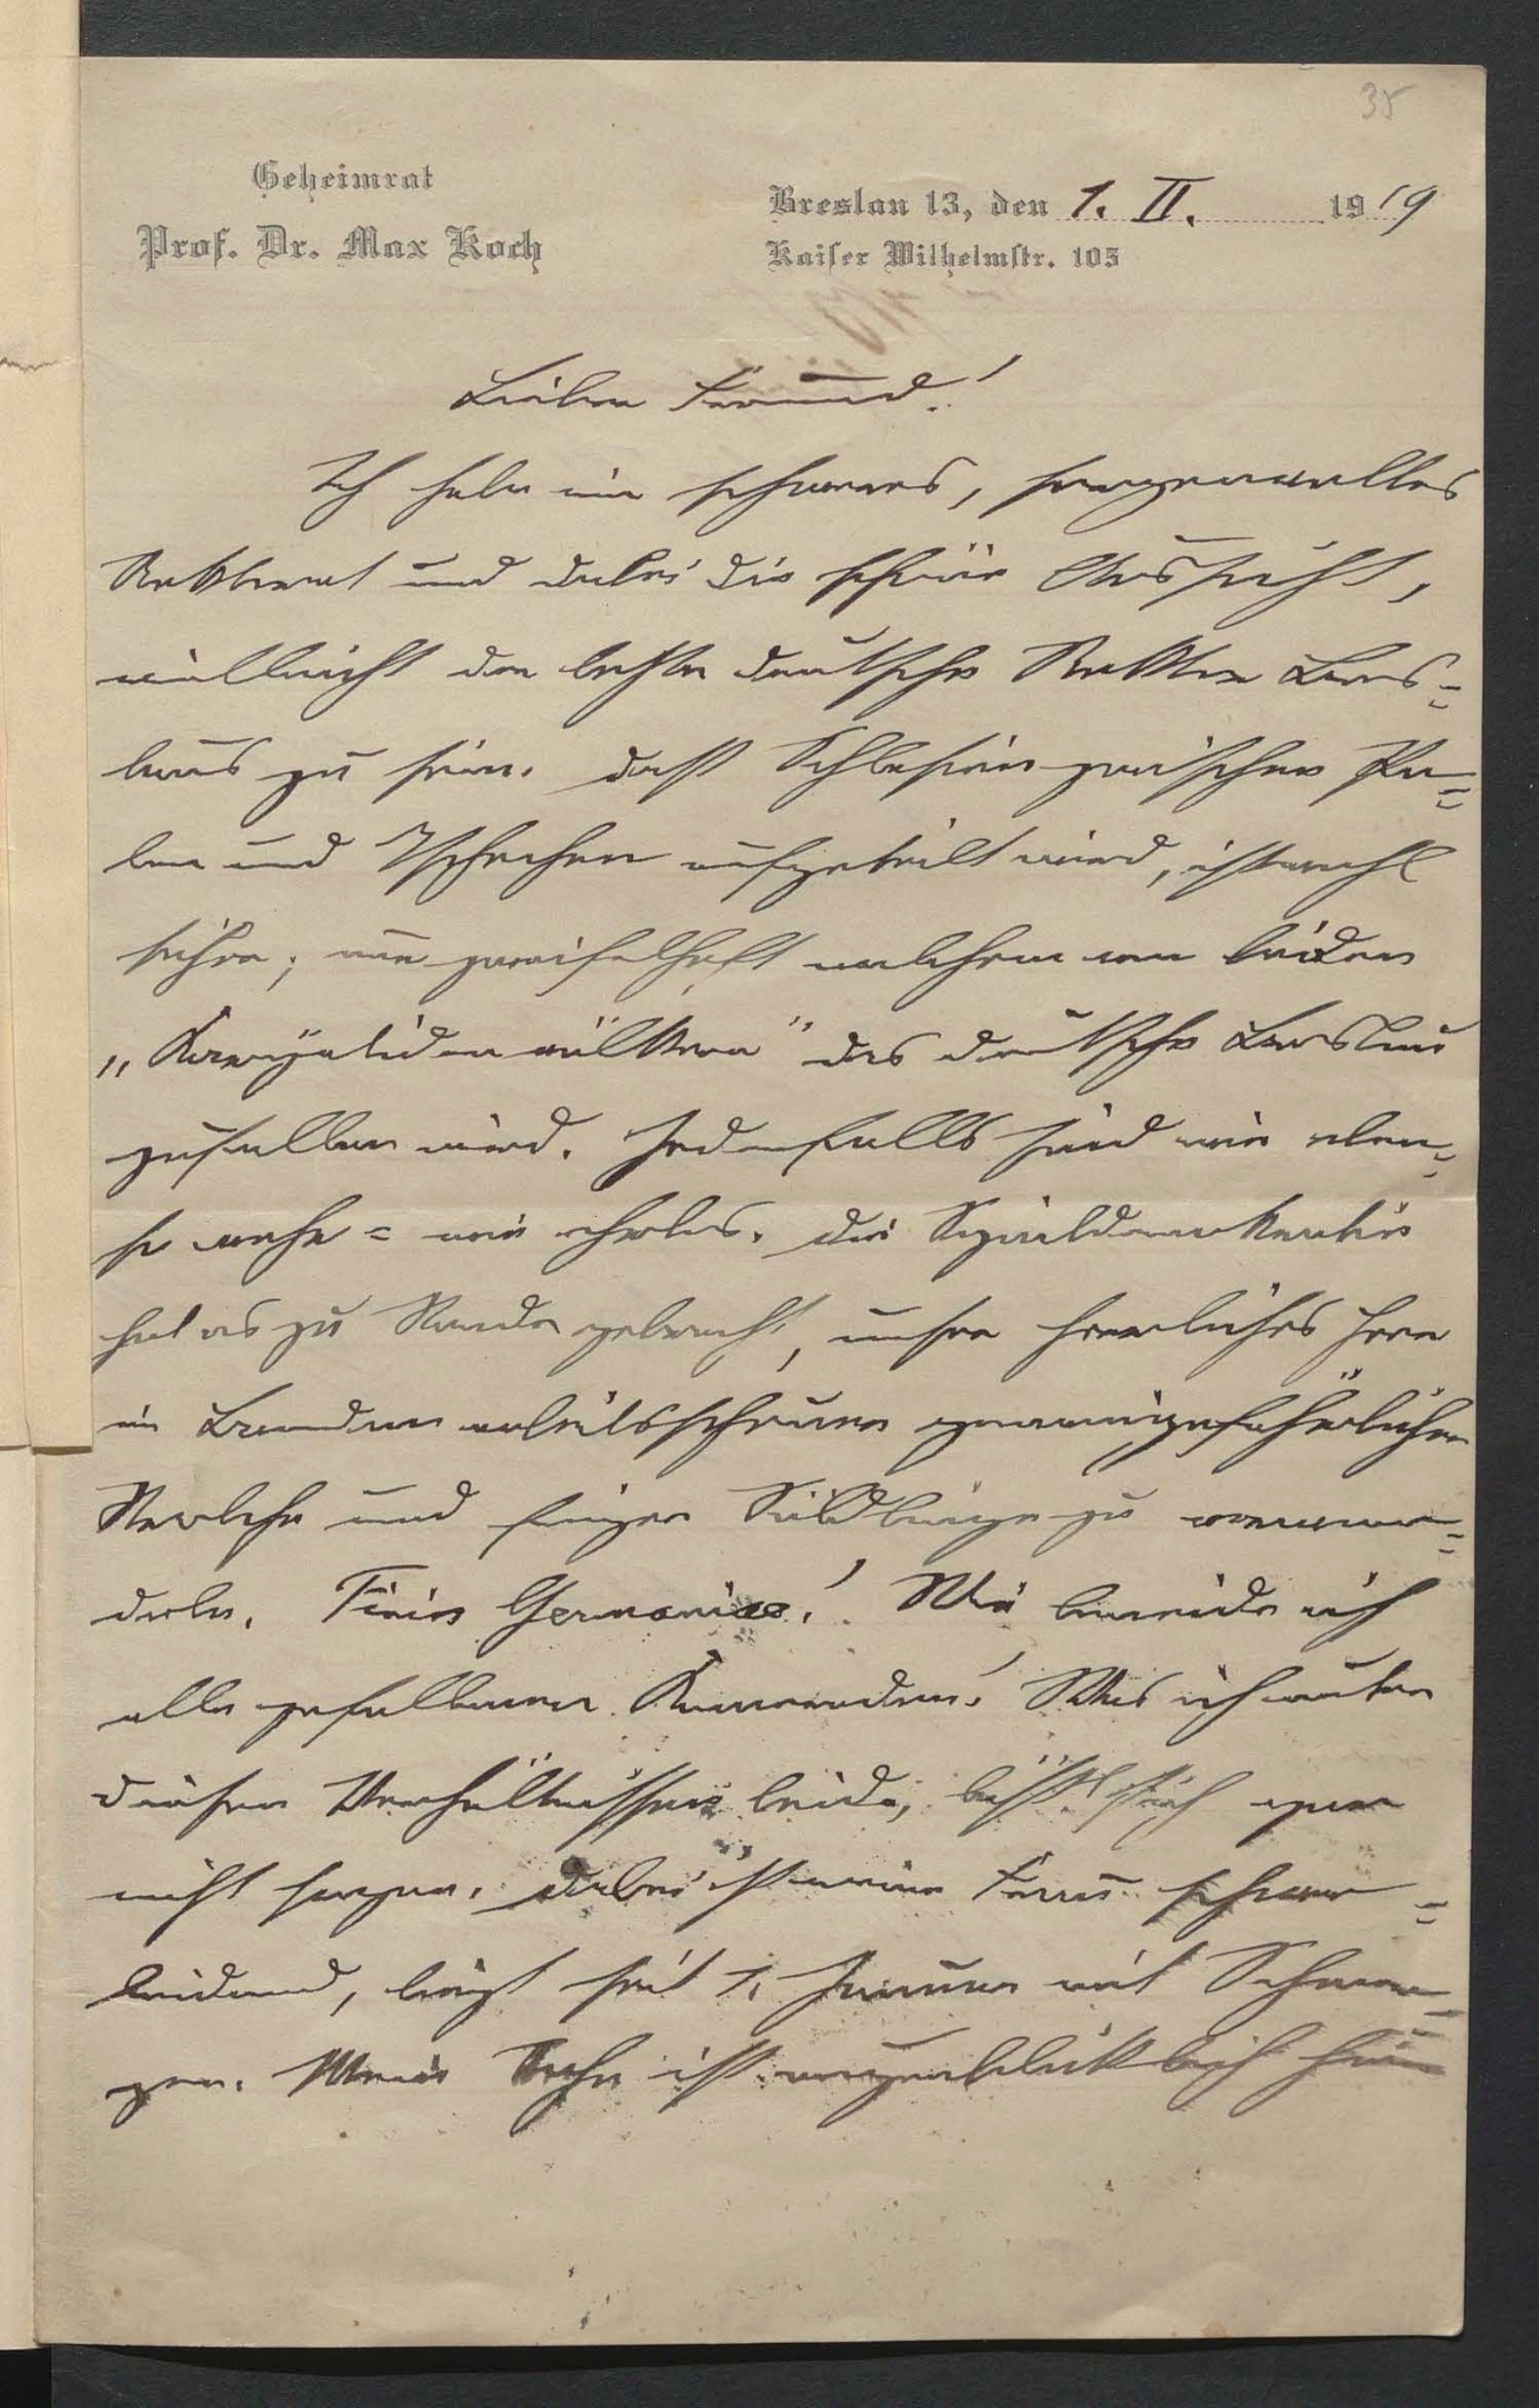 35
Geheimrat
Prof. Dr. Max Koch
Breslau 13, den 1. II. 1919
Kaiser Wilhelmstr. 105
Lieber Freund!
Ich habe ein schweres, sorgenvolles
Rektorat und dabei die schöne Aussicht,
vielleicht der letzte deutsche Rektor Bres=
laus zu sein. Dass Schlesien zwischen Po=
len und Tschechen aufgeteilt wird, ist wohl
sicher; nur zweifelhaft welchem von beiden
das deutsche Breslau
zufallen wird. Jedenfalls sind wir eben=
so wehr= wie ehrlos. Die Sozialdemokratie
hat es zu Stande gebracht, unser herrliches Heer
in Banden arbeitsscheuer gemeingefährlicher
Strolche und feiger zu verwan=
deln. Finis Germaniae! Wie beneide ich
alle gefallenen Kameraden! Was ich unter
diesen Verhältnissen leide, lässt sich gar
nicht sagen. Dabei ist meine Frau schwer=
leidend, liegt seit 1. Januar mit Schmer=
zen. Mein Sohn ist augenblicklich hier